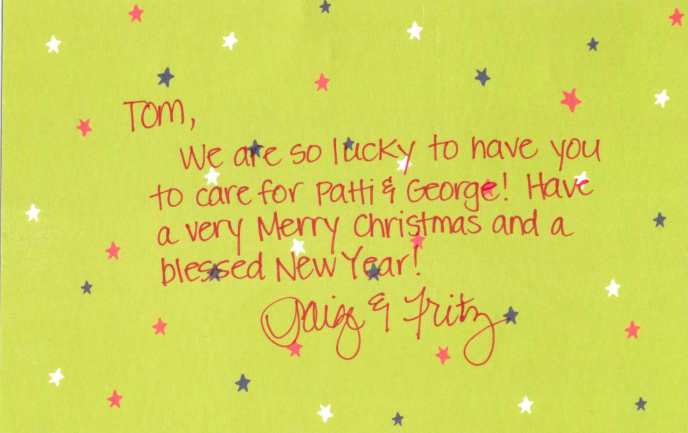 Tom,
We are so lucky to have you
to care for Patti & George! Have
a very Merry Christmas and a
blessed New Year!
Paige & Fritz